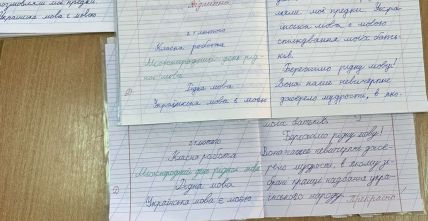 Українська мова є мовою
Прекрасно
21 лютого
Класна робота
Міжнародний день рід
ної мови
Рідна мова
Українська мова є мовою
мої предки. Укра
їнська мова є мовою
спілкування моїх батьків
ків.
Бережімо рідну мову!
Вона наше невичерпне
джерело мудрості, в яко-
21 лютого
Класна робота
Міжнародний день рідної мови
Рідна мова
Українська мова є мовою
моїх батьків.
Бережімо рідну мову!
Вона наше невичерпне джe
рело мудрості, в якому зі
брані кращі надбання укра
їнського народу. Прекрасно!